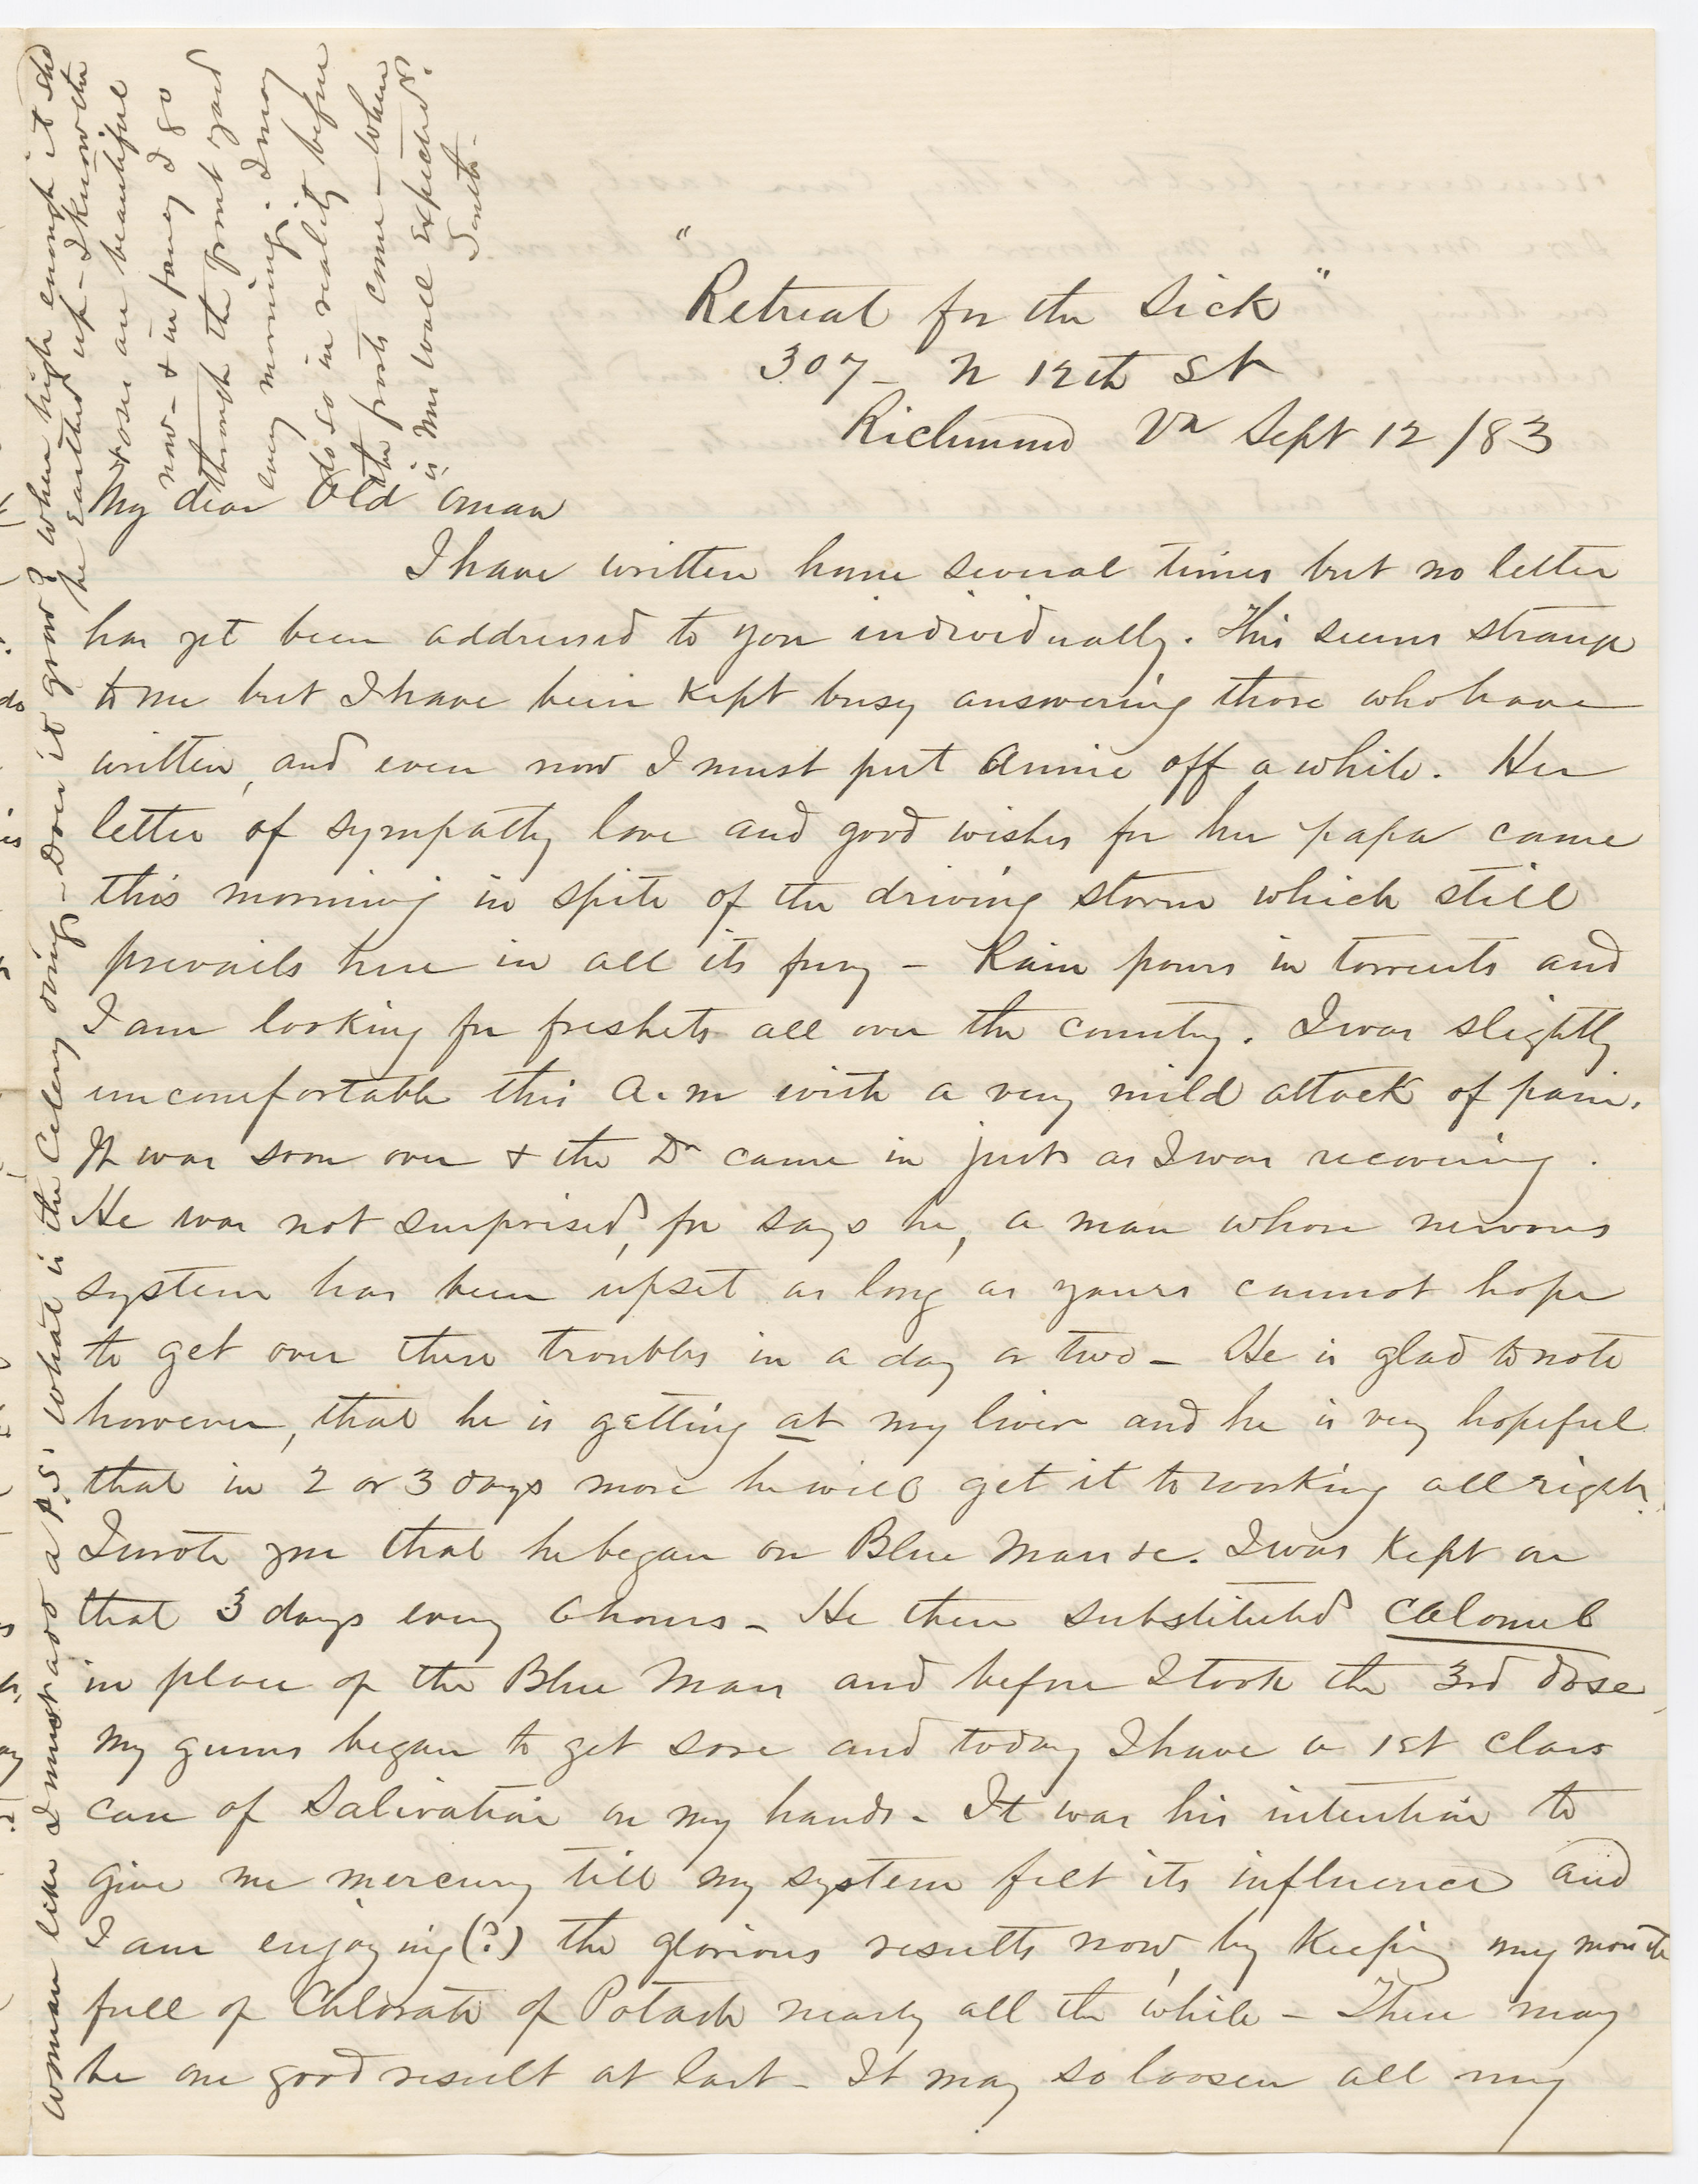 "Retreat for the Sick"
307 - N 12th St
Richmond Va Sept 12 /83
My dear Old Oman
I have written home several times but no letter
has yet been addressed to you individually. This seems strange
to me but I have been kept busy answering those who have
written, and even now I must put Annie off a while. Her
letter of sympathy love and good wishes for her papa came
this morning in spite of the driving storm which still
prevails here in all its fury - Rain pours in torrents and
I am looking for freshets all over the country. I was slightly
uncomfortable this a.m with a very mild attack of pain.
It was soon over + the Dr came in just as I was recovering.
He was not surprised, for says he, a man whose nervous
system has been upset as long as yours cannot hope
to get over these troubles in a day or two - He is glad to note
however, that he is getting at my liver and he is very hopeful
that in 2 or 3 days more he will get it to working all right.
I wrote you that he began on Blue Mass &c. I was kept on
that 3 days every 6 hours - He then substituted calomel
in place of the Blue Mass and before I took the 3rd dose,
my gums began to get sore and today I have a 1st class
case of Salivation on my hands - It was his intention to
give me mercury till my system felt its influence and
I am enjoying (?) the glorious results now, by keeping my mouth
full of Chlorate of Potash nearly all the while - There may
be one good result at last - It may so loosen all my
woman like I must add a P.S. what is the Celery doing - Does it grow? when high enough it shd
be earthed up - I know the
roses are beautiful
now - + in fancy I go
through the front yard
every morning. I may
do so in reality before
the frosts come - When
is Mrs Wall expected?